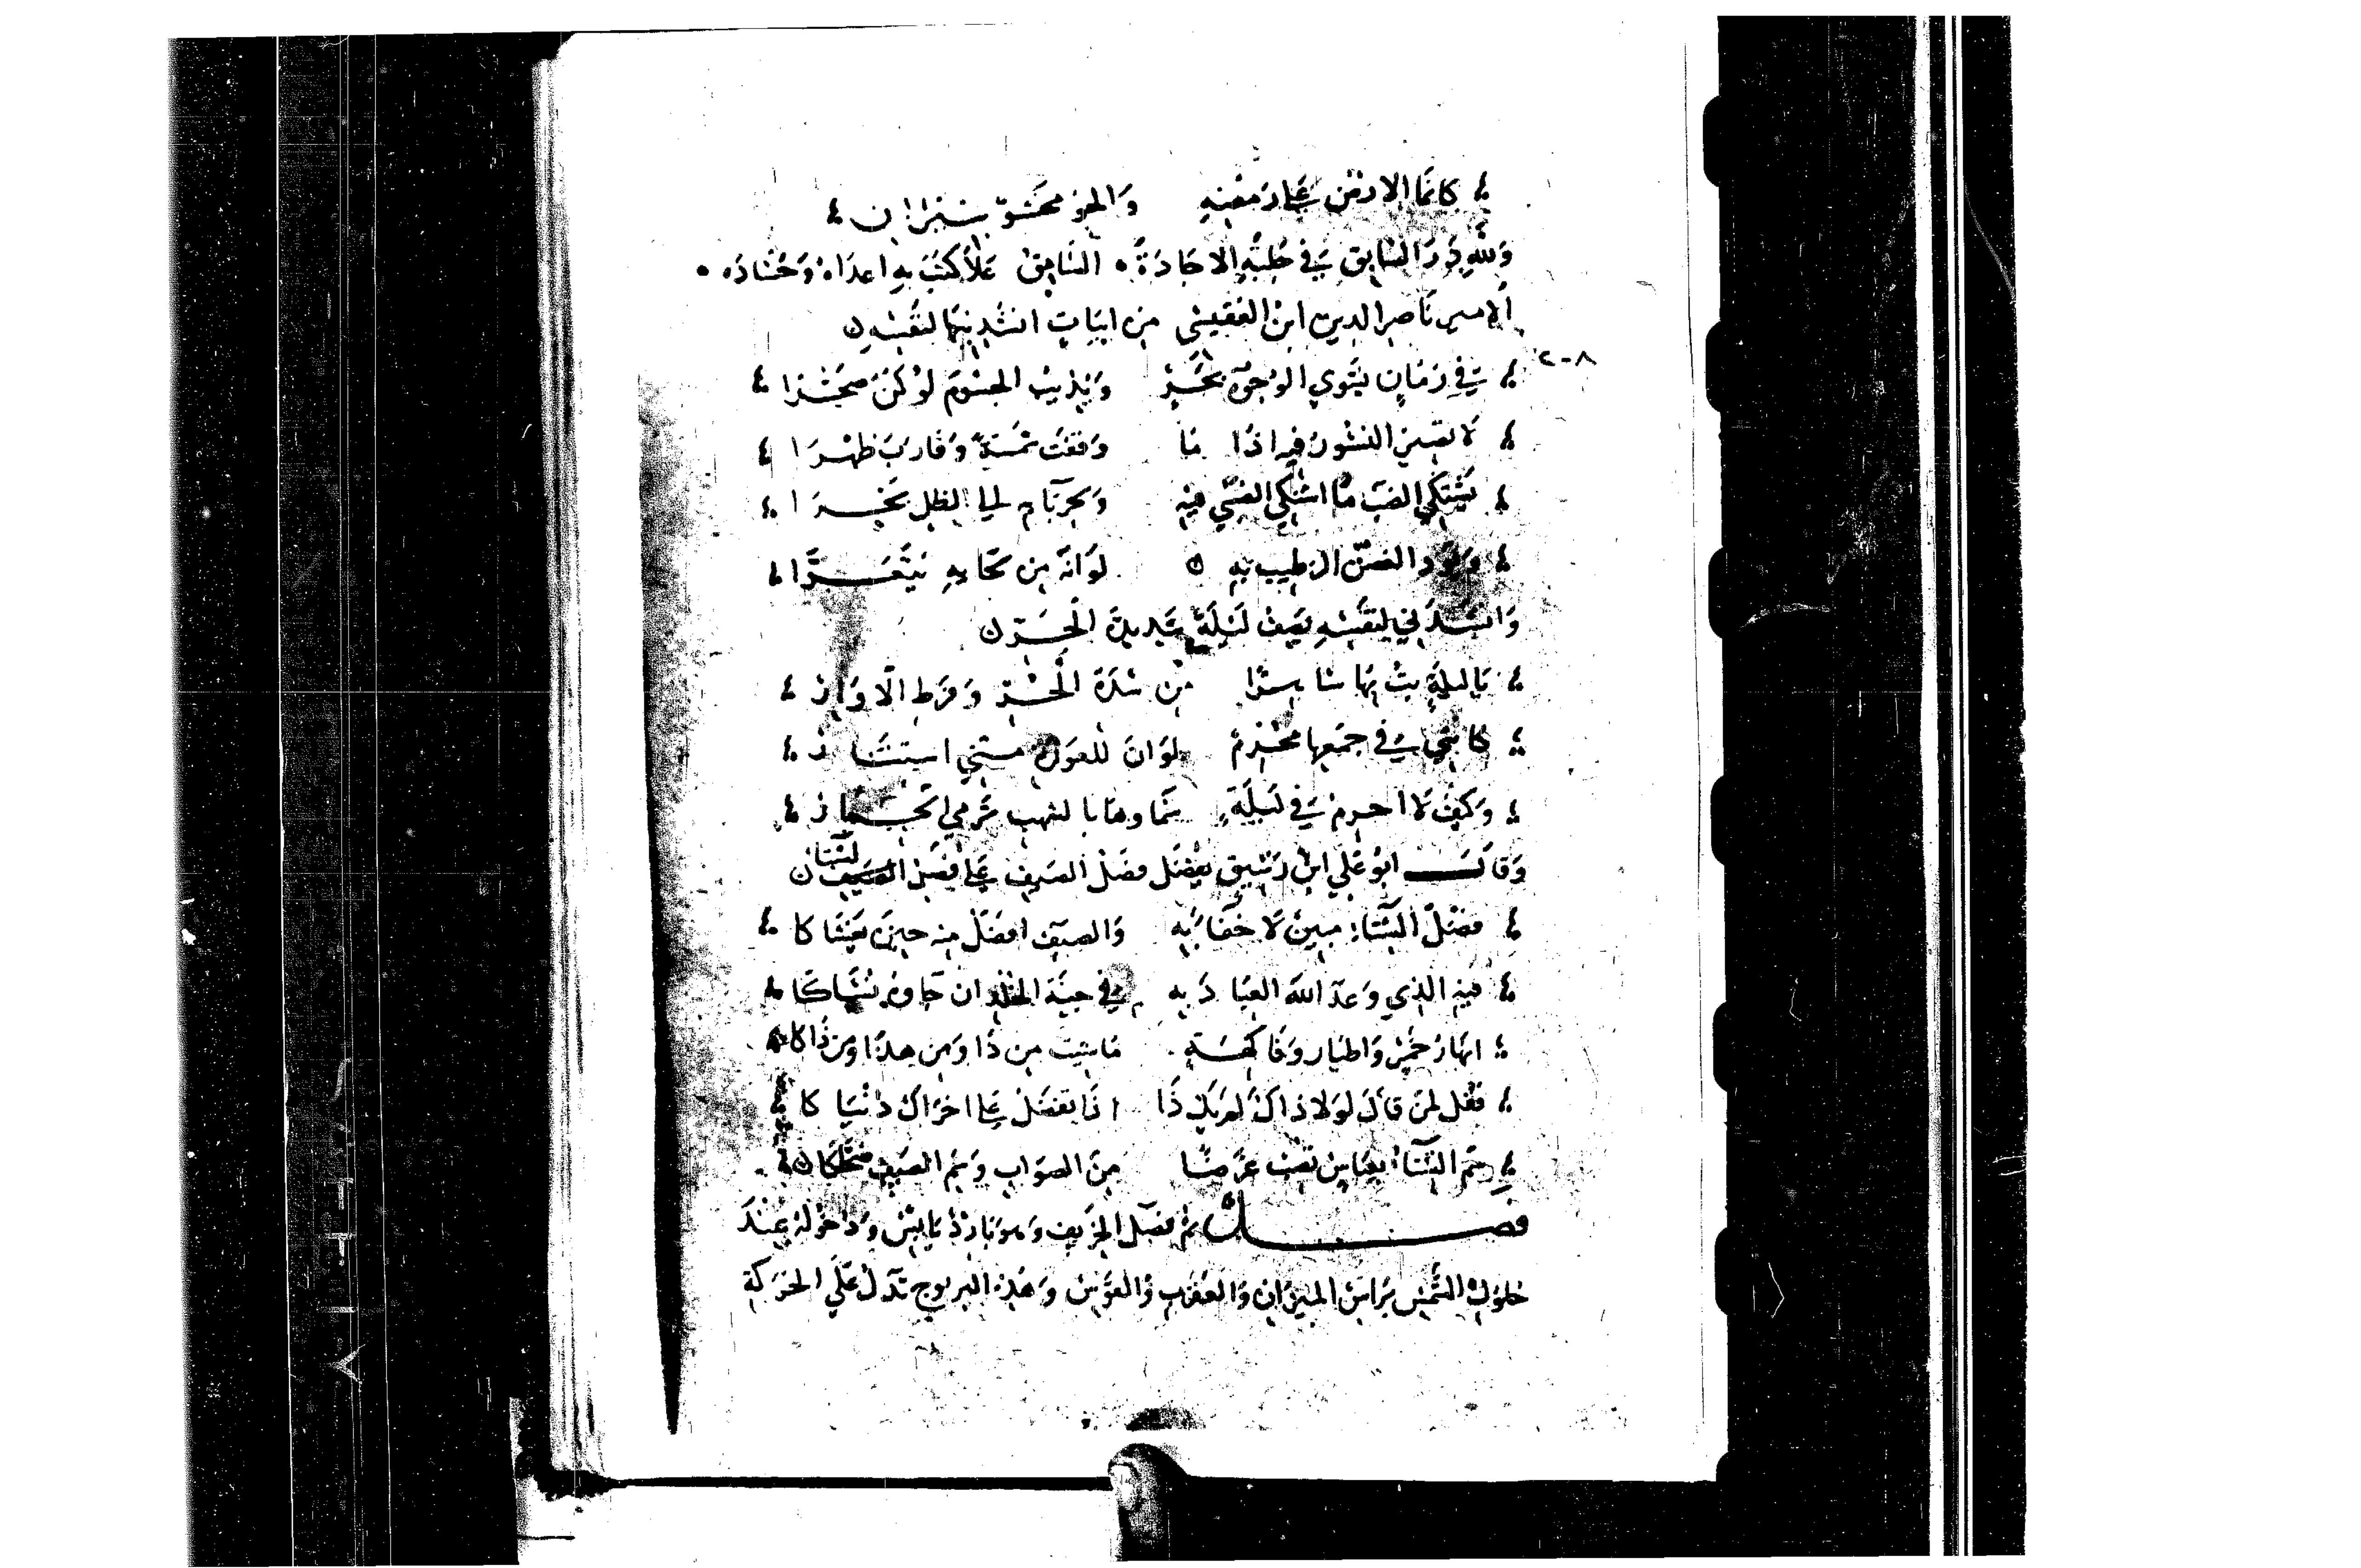 كانما الارض على رمضه والجو محشو بنيران
ولله در السابق في حلبة الاجادة النامق علا كتب به اعداه وحساده
الامير ناصر الدين ابن الفقيسي من ابيات انشدنيها لنفسه
في زمان يشوي الوجوه بحر ويذيب الجسوم لو كن صخرا
٢٠٨
لا تصير النسور فيه اذا ما وقفت شمسه وقارب ظهرا
يشتكي الضب ما اشتكي الضب فيه وبحرباه الي الظل بحرا
ويود الغصن الرطيب به لو انه من لحايه يتعرا
وانشدني لنفسه يصف ليلة شديدة الحر
يا ليلة بت بها ساهرا من شدة الحر وفرط الاوار
كانني في جمعها محرم لو ان للعورة مني استتار
وكيف لا احرم في ليلة سماوها بالشهب ترمي الجمار
وقال ابو علي ابن رشيق يفضل فصل الصيف علي فصل الشتا
فصل الشتا مبين لا خفا به والصيف افضل منه حين يغشاكا
فيه الذي وعد الله العباد به في جنة الخلد ان جاوه نساكا
انهار خمر واطيار وفاكهة ما شيت من ذا ومن هذا ومن ذاكا
فقل لمن قال لولا ذاك لم يك ذا اذا تفضل علي اخراك دنياكا
سم الشتا بعباس تصب غرضا من الصواب وسم الصيف ضحاكا
فصل ثم فصل الخريف وهو بارد يابس ودخوله عند
حلول الشمس براس الميزان والعقرب والقوس وهذه البروج تدل علي الحركة